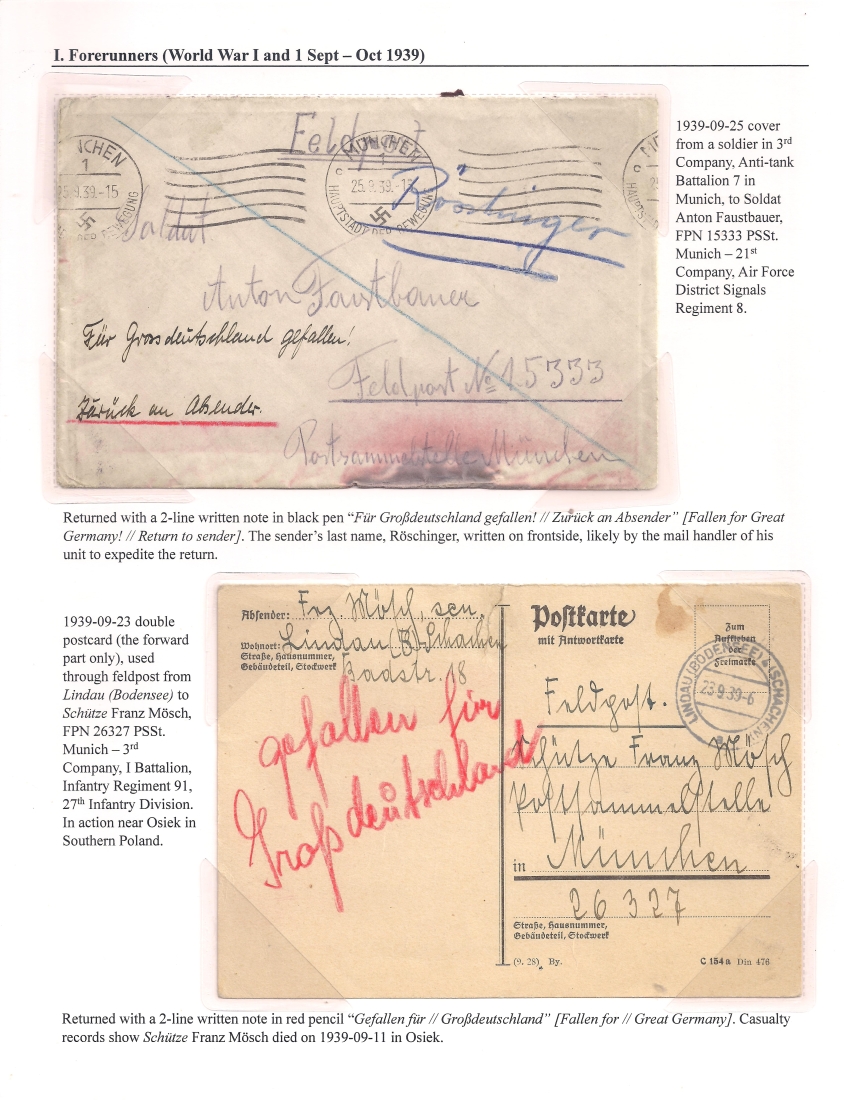 I. Forerunners (World War I and 1 Sept – Oct 1939)
Feldpost
MÜNCHEN
1
25.9.39.-15
HAUPTSTADT DER BEWEGUNG
Röschinger
Soldat
Anton Faustbauer
Für Grossdeutschland gefallen!
Feldpost № 15333
Zürück an Absender.
Postsammelstelle München
1939-09-25 cover
from a soldier in 3rd
Company, Anti-tank
Battalion 7 in
Munich, to Soldat
Anton Faustbauer,
FPN 15333 PSSt.
Munich – 21st
Company, Air Force
District Signals
Regiment 8.
Returned with a 2-line written note in black pen “Für Großdeutschland gefallen! // Zurück an Absender” [Fallen for Great
Germany! // Return to sender]. The sender’s last name, Röschinger, written on frontside, likely by the mail handler of his
unit to expedite the return.
1939-09-23 double
postcard (the forward
part only), used
through feldpost from
Lindau (Bodensee) to
Schütze Franz Mösch,
FPN 26327 PSSt.
Munich – 3rd
Company, I Battalion,
Infantry Regiment 91,
27th Infantry Division.
In action near Osiek in
Southern Poland.
Absender: Frz. Mösch, sen.
Wohnort: Lindau (B) Schachen
Straße, Hausnummer,
Gebäudeteil, Stockwerk
Badstr. 18
gefallen für
Großdeutschland
Postkarte
mit Antwortkarte
Zum
Aufkleben
der
Freimarke
LINDAU (BODENSEE) (SCHACHEN)
23.9.39-6
Feldpost.
Schütze Franz Mösch
Postsammelstelle
in München
26327
Straße, Hausnummer,
Gebäudeteil, Stockwerk
(9. 28) By.
C 154a Din 476
Returned with a 2-line written note in red pencil “Gefallen für // Großdeutschland” [Fallen for // Great Germany]. Casualty
records show Schütze Franz Mösch died on 1939-09-11 in Osiek.